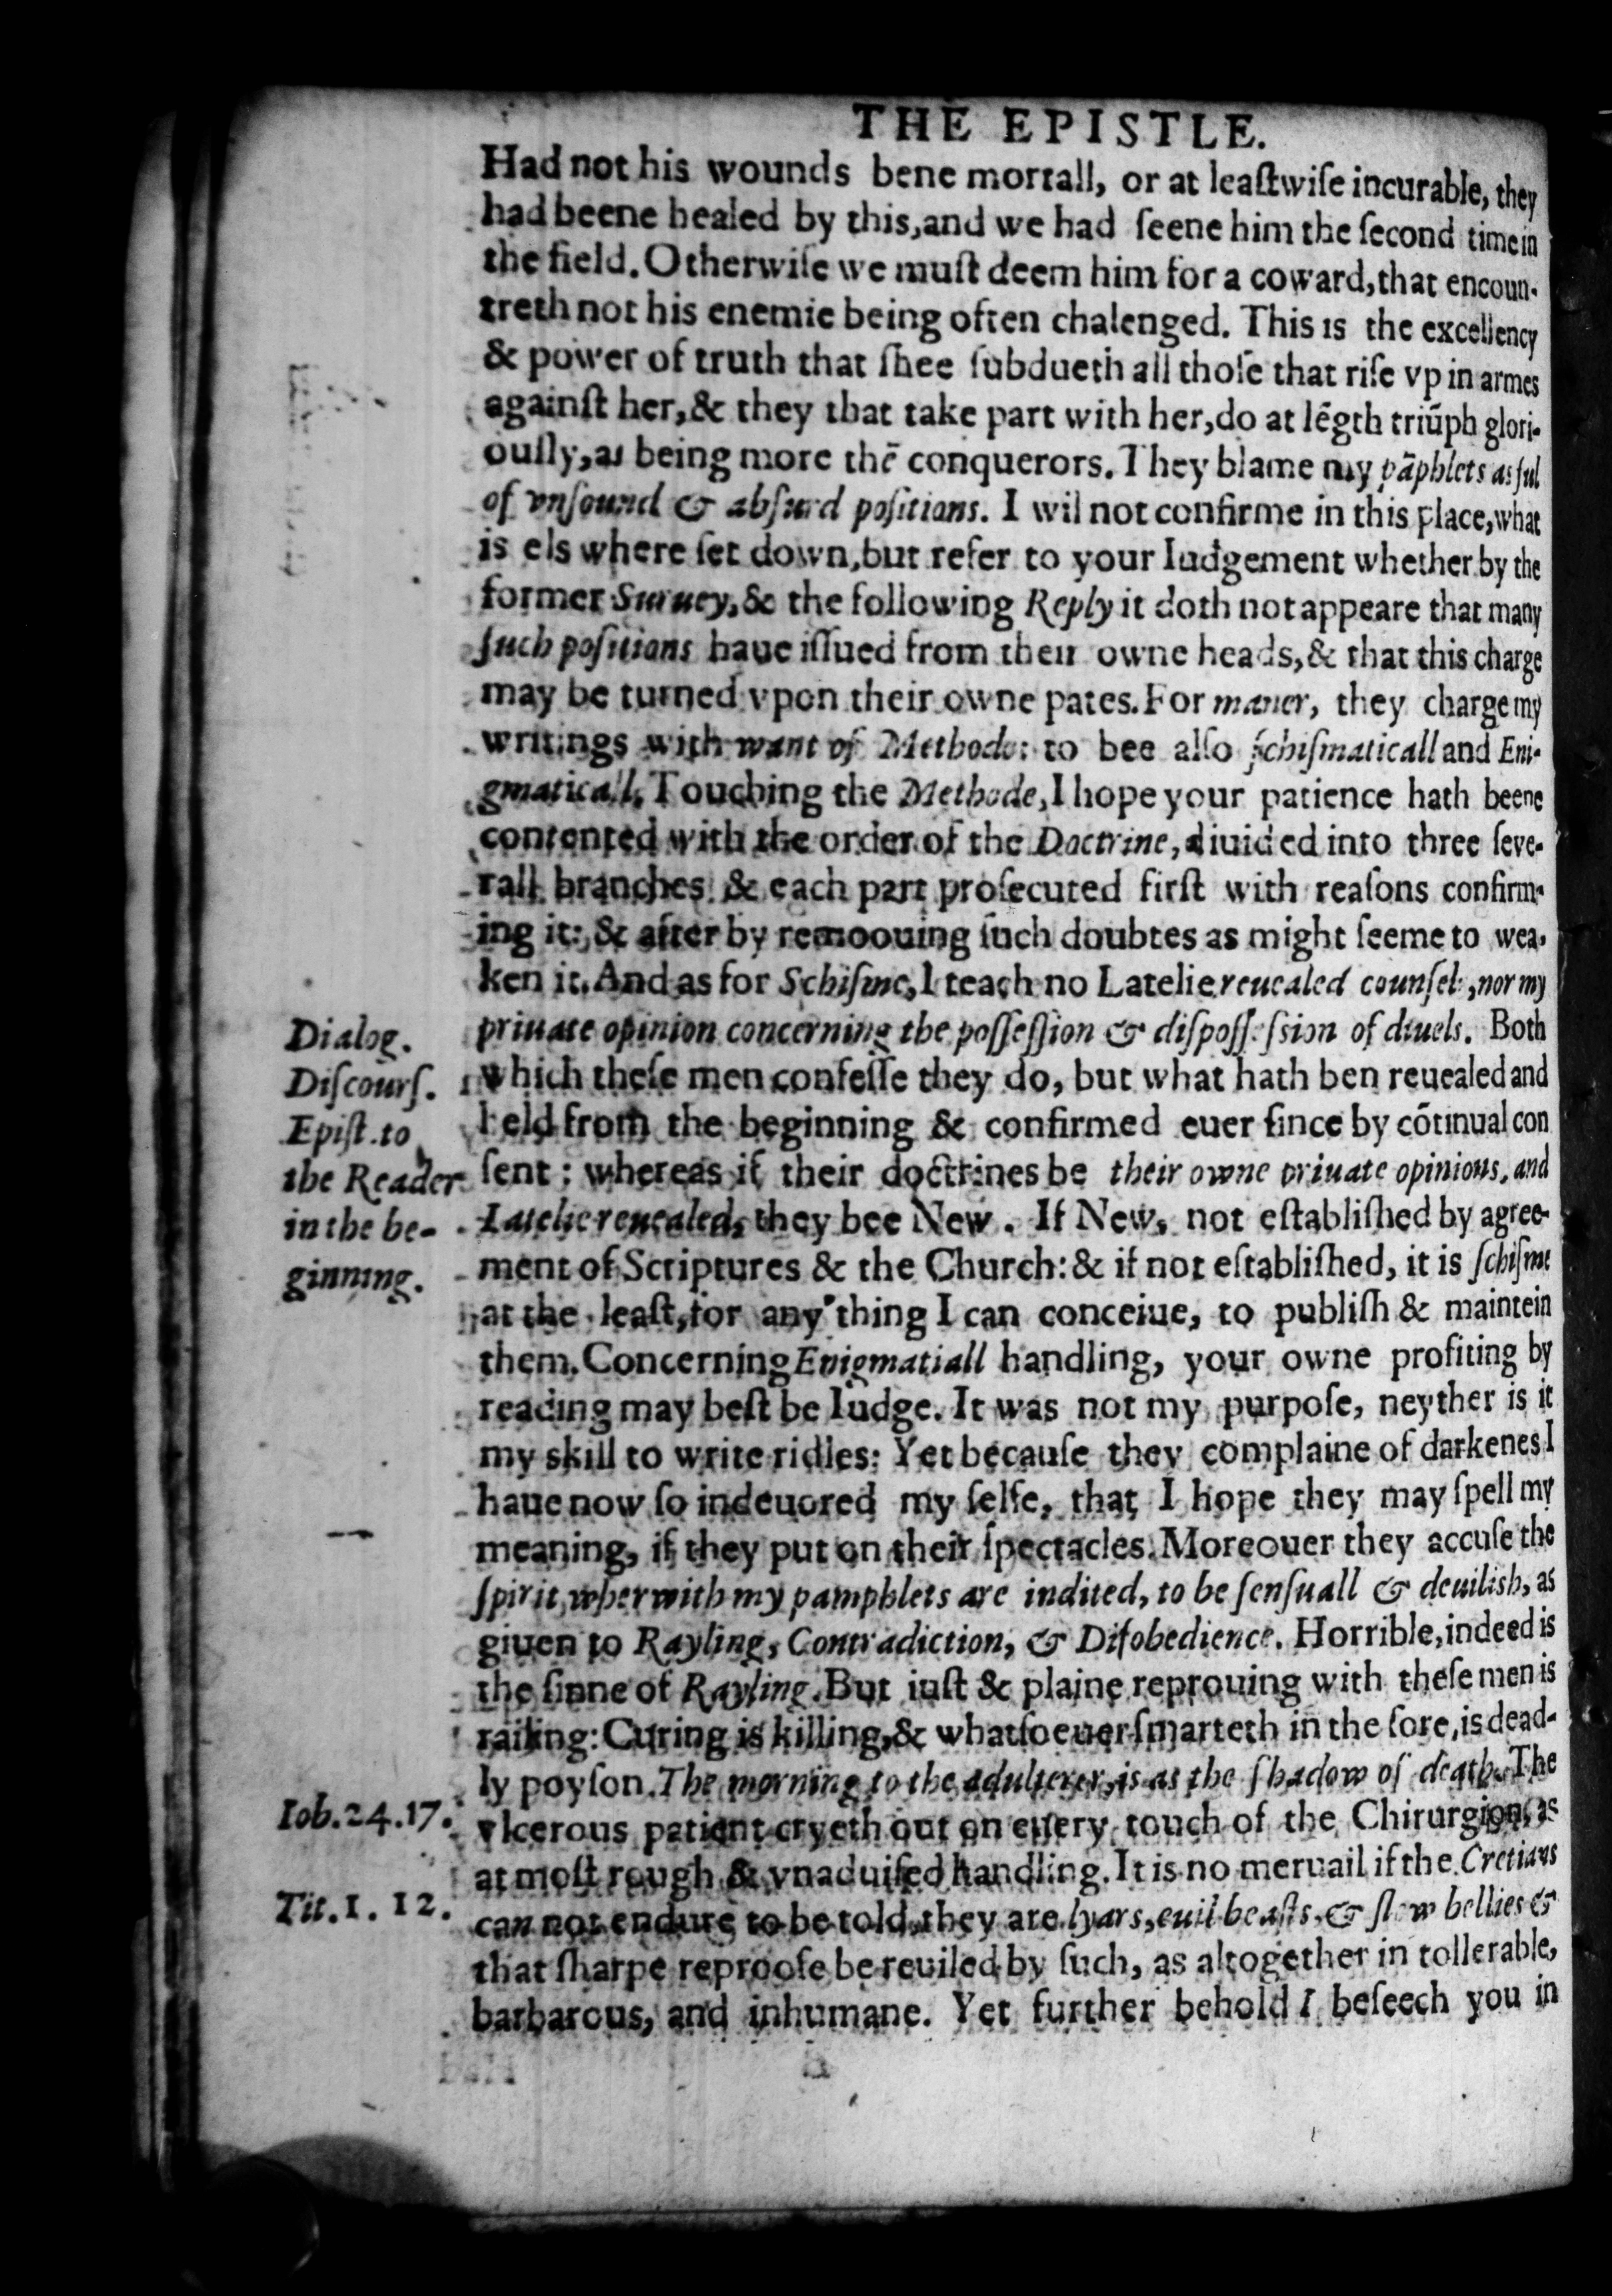 THE EPISTLE.
Had not his wounds bene mortall, or at leaſtwiſe incurable, they
had beene healed by this, and we had ſeene him the ſecond time in
the field. Otherwiſe we muſt deem him for a coward, that encoun-
treth not his enemie being often chalenged. This is the excellency
& power of truth that ſhee ſubdueth all thoſe that riſe vp in armes
againſt her, & they that take part with her, do at lēgth triūph glori-
ouſly, as being more thē conquerors. They blame my pāphlets as ful
of vnſound & abſurd poſitions. I wil not confirme in this place, what
is els where ſet down, but refer to your Iudgement whether by the
former Suruey, & the following Reply it doth not appeare that many
ſuch poſitions haue iſſued from their owne heads, & that this charge
may be turned vpon their owne pates. For maner, they charge my
writings with want of Methode: to bee alſo ſchiſmaticall and Eni-
gmaticall. Touching the Methode, I hope your patience hath beene
contented with the order of the Doctrine, diuided into three ſeve-
rall branches & each part proſecuted firſt with reaſons confirm-
ing it: & after by remoouing ſuch doubtes as might ſeeme to wea-
ken it. And as for Schiſme, I teach no Latelie reuealed counſel, nor my
Dialog.
Diſcourſ.
Epiſt. to
the Reader
in the be-
ginning.
priuate opinion concerning the poſſeſſion & diſpoſſeſsion of diuels. Both
which theſe men confeſſe they do, but what hath ben reuealed and
held from the beginning & confirmed euer ſince by cōtinual con
ſent: whereas if their doctrines be their owne priuate opinions, and
Latelie reuealed, they bee New. If New, not eſtabliſhed by agree-
ment of Scriptures & the Church: & if not eſtabliſhed, it is ſchiſme
at the leaſt, for any thing I can conceiue, to publiſh & maintein
them. Concerning Enigmatiall handling, your owne profiting by
reading may beſt be Iudge. It was not my purpoſe, neyther is it
my skill to write ridles: Yet becauſe they complaine of darkenes I
haue now ſo indeuored my ſelfe, that I hope they may ſpell my
meaning, if they put on their ſpectacles. Moreouer they accuſe the
ſpirit wherwith my pamphlets are indited, to be ſenſuall & deuilish, as
giuen to Rayling, Contradiction, & Diſobedience. Horrible, indeed is
the ſinne of Rayling. But iuſt & plaine reprouing with theſe men is
railing: Curing is killing, & whatſoeuer ſmarteth in the ſore, is dead-
ly poyſon. The morning to the adulterer, is as the ſhadow of death. The
Iob. 24.17.
vlcerous patient cryeth out on euery touch of the Chirurgion, as
at moſt rough & vnaduiſed handling. It is no meruail if the Cretians
Tit. 1. 12.
can not endure to be told, they are lyars, euil beaſts, & ſlow bellies &
that ſharpe reprooſe be reuiled by ſuch, as altogether in tollerable,
barbarous, and inhumane. Yet further behold I beſeech you in